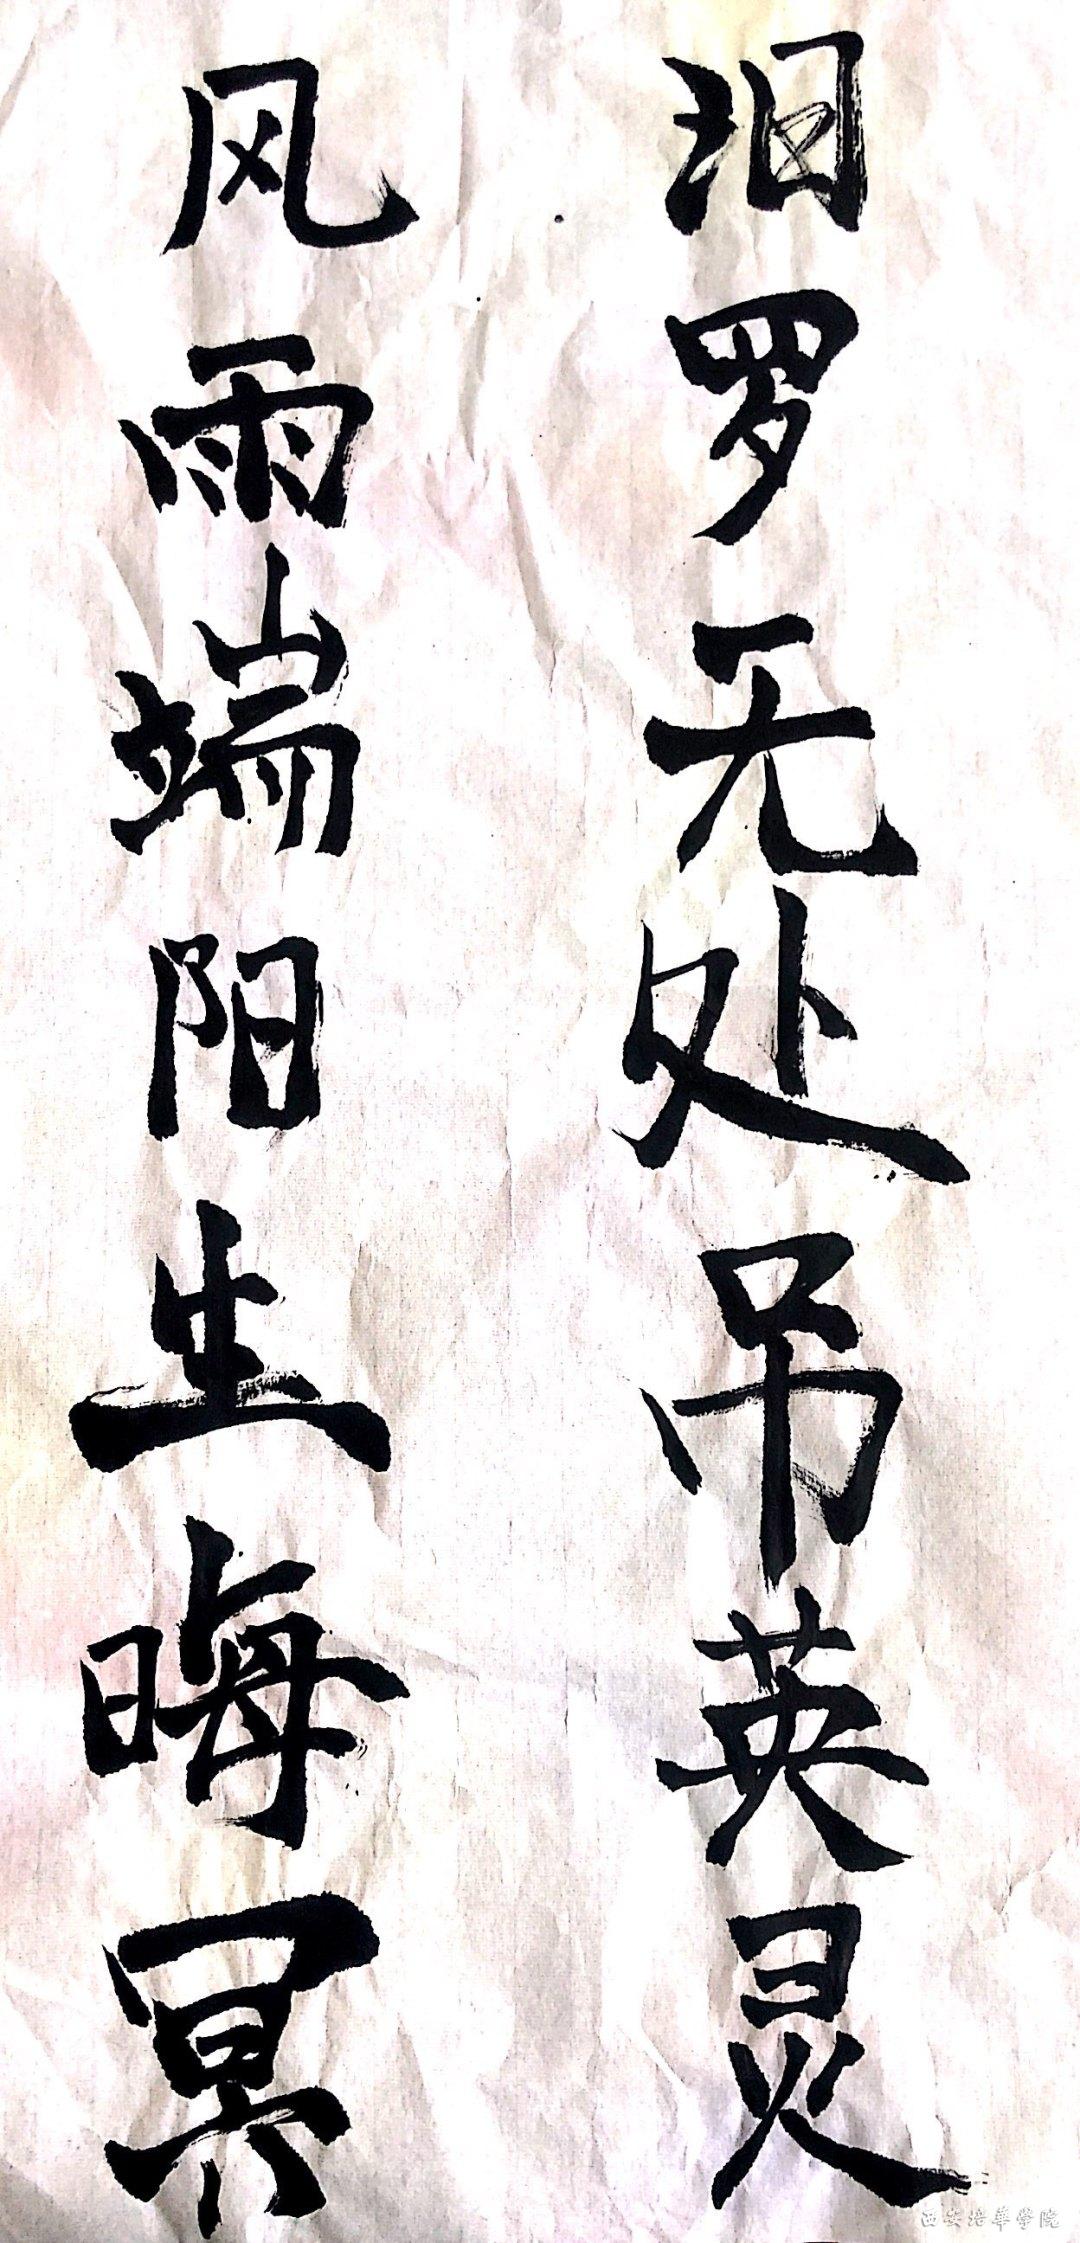 风雨端阳生晦冥
汨罗无处吊英灵
西安培華學院